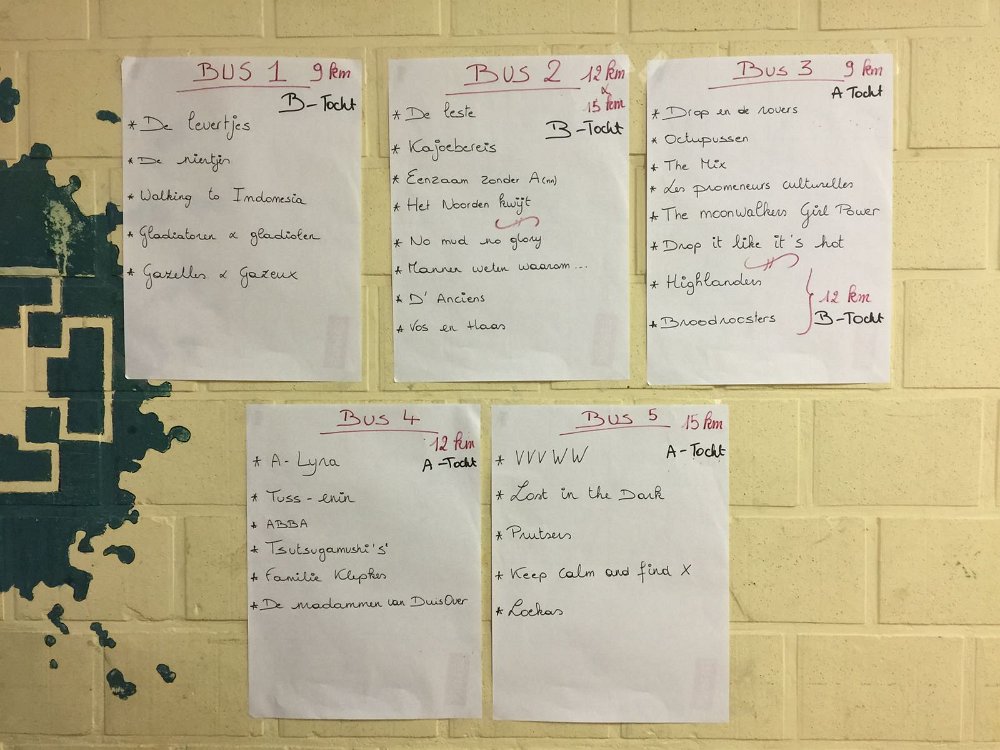 BUS 1 9 km
B-Tocht
* De levertjes
* De niertjes
* Walking to Indonesia
* Gladiatoren & gladiolen
* Gazelles & Gazeux
BUS 2 12 km
&
15 km
B-Tocht
* De leste
* Kajoebereis
* Eenzaam zonder A(nn)
* Het Noorden kwijt
* No mud no glory
* Mannen weten waarom...
* D'Anciens
* Vos en Haas
BUS 3 9 km
A Tocht
* Drop en de rovers
* Octupussen
* The Mix
* Les promeneurs culturelles
* The moonwalkers Girl Power
* Drop it like it's hot
* Highlanders
12 km
* Broodroosters
B-Tocht
BUS 4
12 km
A-Tocht
* A-Lyra
* Tuss-enin
* ABBA
* Tsutsugamushi's'
* Familie Klepkes
* De madammen van DuisOver
BUS 5 15 km
A-Tocht
* VVVWW
* Lost in the Dark
* Prutsers
* Keep calm and find X
* Loekas